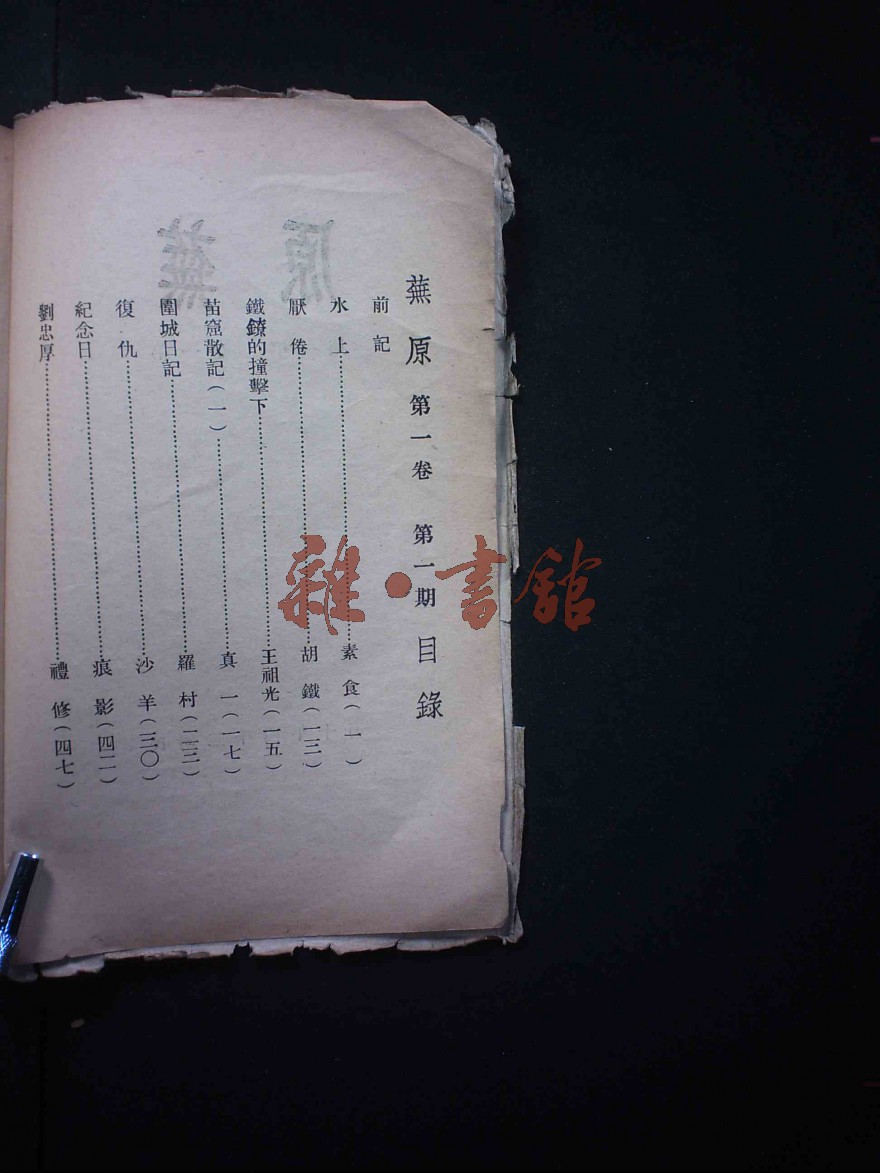 蕪原 第一卷 第一期 目錄
前記
水上……素食(一)
厭倦……胡鐵(一三)
鐵鐐的撞擊下……王祖光(一五)
苗窟散記(一)……真一(一七)
圍城日記……羅村(二三)
復仇……沙羊(三〇)
紀念日……痕影(四二)
劉忠厚……禮修(四七)
蕪原
雜·書館